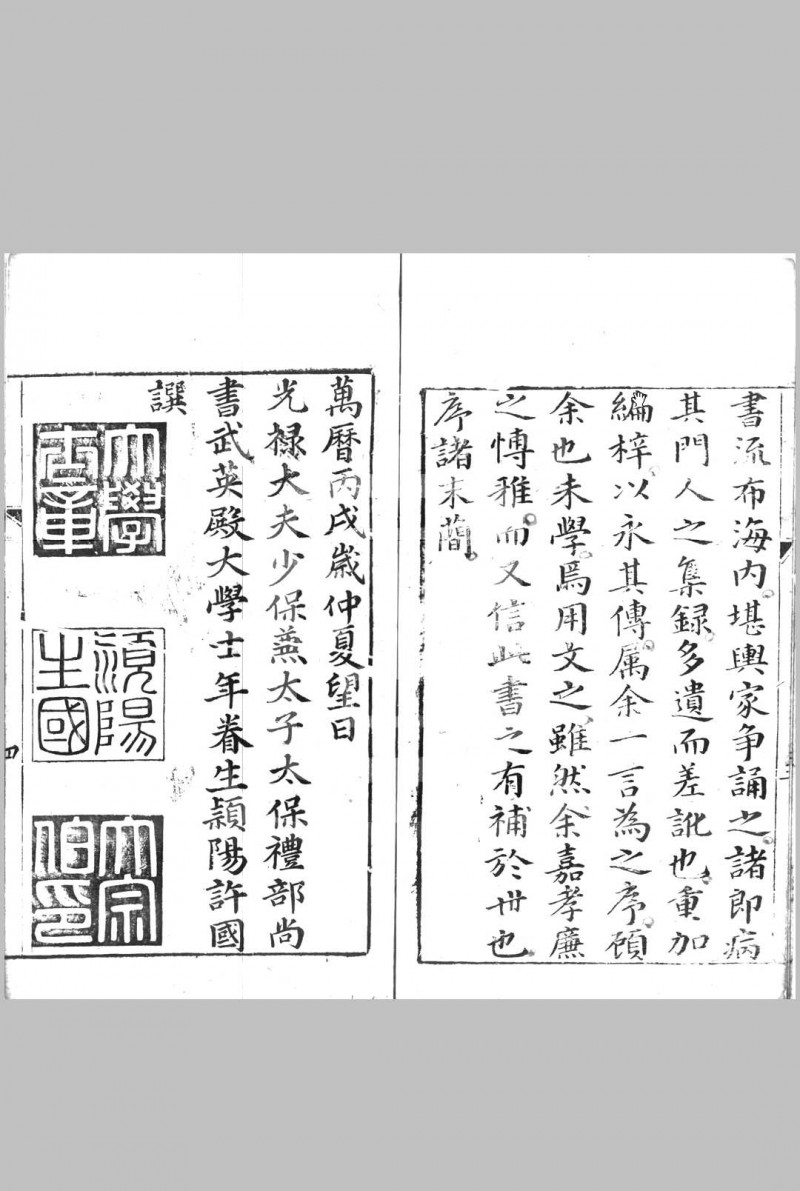 書流布海內堪輿家爭誦之諸即病
其門人之集録多遺而差訛也重加
編梓以永其傳属余一言為之序顧
余也未學焉用文之雖然余嘉孝廉
之愽雅而又信此書之有補於世也
序諸末蕳
萬曆丙戌嵗仲夏望日
光禄大夫少保蕪太子太保禮部尚
書武英殿大學士年眷生頴陽許國
譔
大學士章
潁陽生國
大宗伯印
四